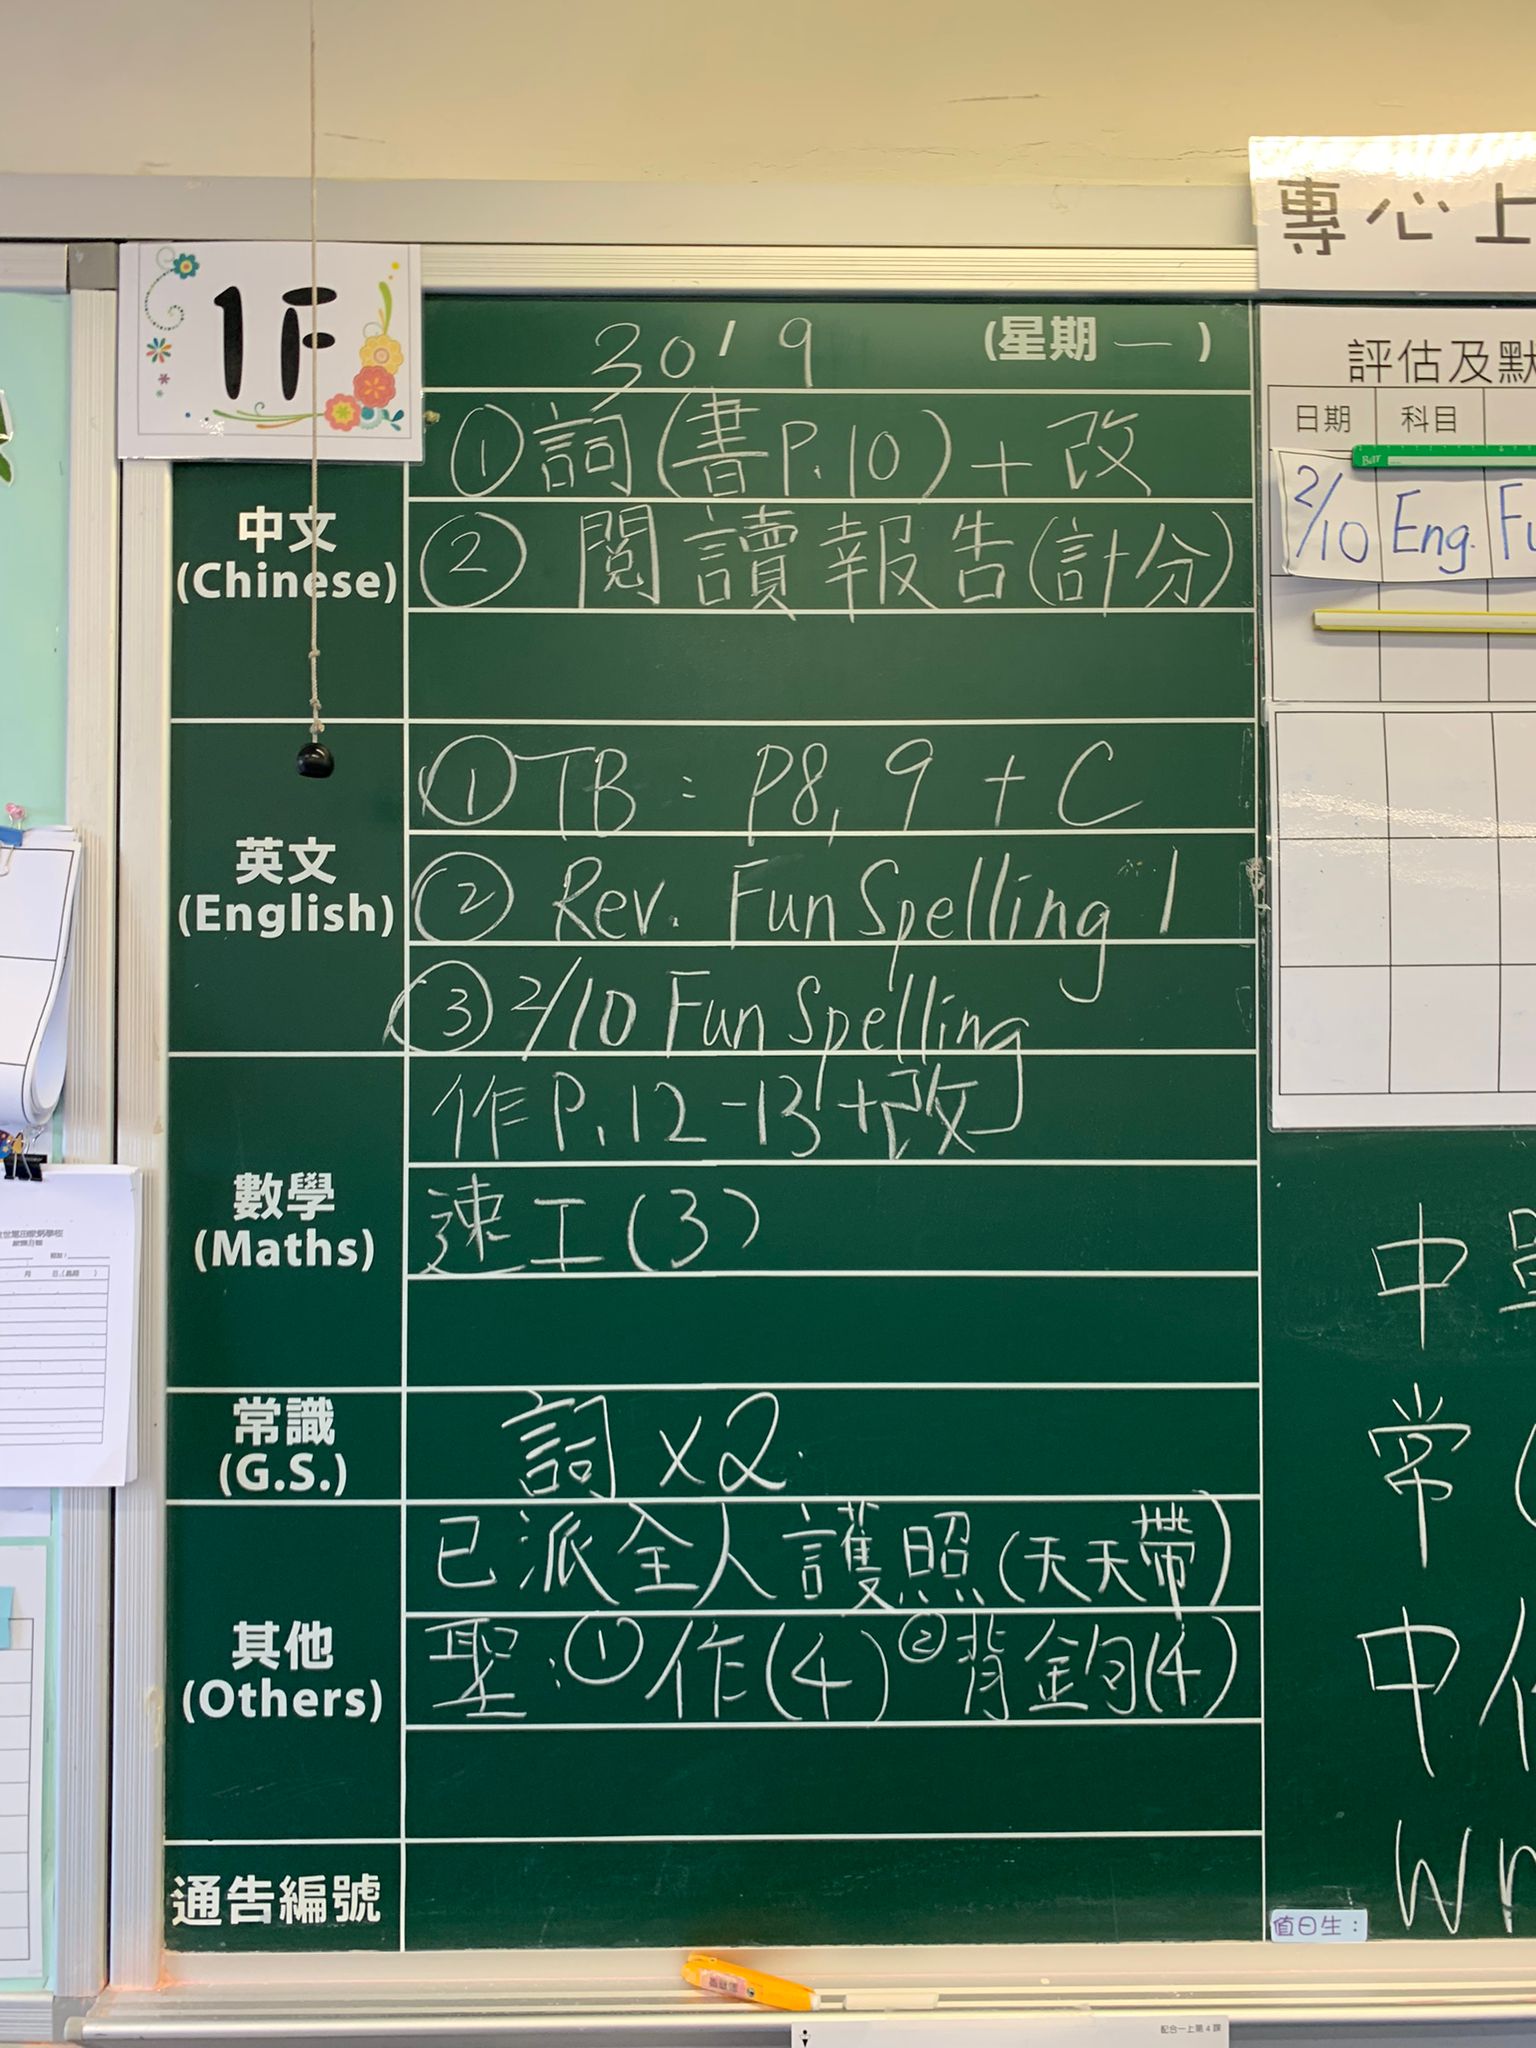 專心上
1F
30/9 (星期一)
中文
(Chinese)
①詞(書P.10)+改
②閱讀報告(計分)
英文
(English)
①TB: P8, 9 + C
② Rev. Fun Spelling 1
③ 2/10 Fun Spelling
數學
(Maths)
作P.12-13+改
速工(3)
常識
(G.S.)
詞 x2.
其他
(Others)
已派全人護照(天天帶)
聖:①作(4) ②背金句(4)
通告編號
評估及默
日期 科目
2/10 Eng. Fu
中
常(
中作
Wr
值日生:
配合一上第4課